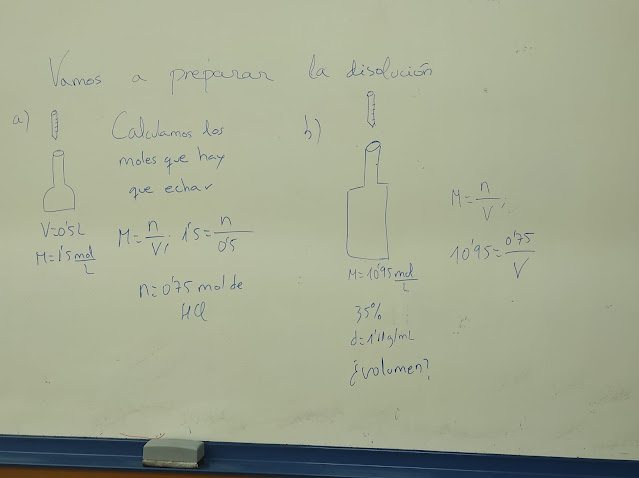 Vamos a preparar la disolución
a)
Calculamos los
moles que hay
que echar
V=0'5L
M=1'5 mol/L
M = n/V; 1'5 = n/0'5
n=0'75 mol de
HCl
b)
M=10'95 mol/L
35%
d=1'11g/mL
¿volumen?
M = n/V;
10'95 = 0'75/V